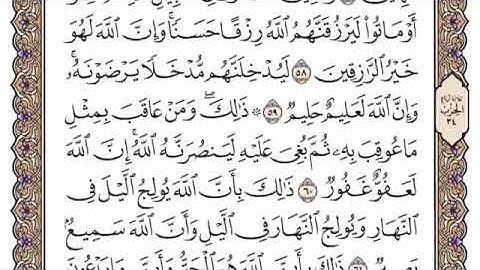 أَوْ مَاتُوا۟ لَيَرْزُقَنَّهُمُ ٱللَّهُ رِزْقًا حَسَنًا ۚ وَإِنَّ ٱللَّهَ لَهُوَ
خَيْرُ ٱلرَّٰزِقِينَ ٥٨ لَيُدْخِلَنَّهُم مُّدْخَلًا يَرْضَوْنَهُۥ ۗ
وَإِنَّ ٱللَّهَ لَعَلِيمٌ حَلِيمٌ ٥٩ ۞ ذَٰلِكَ ۖ وَمَنْ عَاقَبَ بِمِثْلِ
مَا عُوقِبَ بِهِۦ ثُمَّ بُغِىَ عَلَيْهِ لَيَنصُرَنَّهُ ٱللَّهُ ۗ إِنَّ ٱللَّهَ
لَعَفُوٌّ غَفُورٌ ٦٠ ذَٰلِكَ بِأَنَّ ٱللَّهَ يُولِجُ ٱلَّيْلَ فِى
ٱلنَّهَارِ وَيُولِجُ ٱلنَّهَارَ فِى ٱلَّيْلِ وَأَنَّ ٱللَّهَ سَمِيعٌۢ
بَصِيرٌ ٦١ ذَٰلِكَ بِأَنَّ ٱللَّهَ هُوَ ٱلْحَقُّ وَأَنَّ مَا يَدْعُونَ
الحزب
٣٤